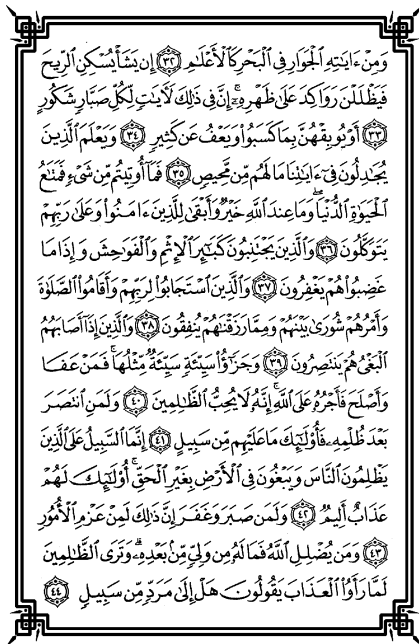 وَمِنْ ءَايَٰتِهِ ٱلْجَوَارِ فِى ٱلْبَحْرِ كَٱلْأَعْلَٰمِ ٣٢ إِن يَشَأْ يُسْكِنِ ٱلرِّيحَ
فَيَظْلَلْنَ رَوَاكِدَ عَلَىٰ ظَهْرِهِۦٓ ۚ إِنَّ فِى ذَٰلِكَ لَءَايَٰتٍ لِّكُلِّ صَبَّارٍ شَكُورٍ
٣٣ أَوْ يُوبِقْهُنَّ بِمَا كَسَبُوا۟ وَيَعْفُ عَن كَثِيرٍ ٣٤ وَيَعْلَمَ ٱلَّذِينَ
يُجَٰدِلُونَ فِىٓ ءَايَٰتِنَا مَا لَهُم مِّن مَّحِيصٍ ٣٥ فَمَآ أُوتِيتُم مِّن شَىْءٍ فَمَتَٰعُ
ٱلْحَيَوٰةِ ٱلدُّنْيَا ۖ وَمَا عِندَ ٱللَّهِ خَيْرٌ وَأَبْقَىٰ لِلَّذِينَ ءَامَنُوا۟ وَعَلَىٰ رَبِّهِمْ
يَتَوَكَّلُونَ ٣٦ وَٱلَّذِينَ يَجْتَنِبُونَ كَبَٰٓئِرَ ٱلْإِثْمِ وَٱلْفَوَٰحِشَ وَإِذَا مَا
غَضِبُوا۟ هُمْ يَغْفِرُونَ ٣٧ وَٱلَّذِينَ ٱسْتَجَابُوا۟ لِرَبِّهِمْ وَأَقَامُوا۟ ٱلصَّلَوٰةَ
وَأَمْرُهُمْ شُورَىٰ بَيْنَهُمْ وَمِمَّا رَزَقْنَٰهُمْ يُنفِقُونَ ٣٨ وَٱلَّذِينَ إِذَآ أَصَابَهُمُ
ٱلْبَغْىُ هُمْ يَنتَصِرُونَ ٣٩ وَجَزَٰٓؤُا۟ سَيِّئَةٍ سَيِّئَةٌ مِّثْلُهَا ۖ فَمَنْ عَفَا
وَأَصْلَحَ فَأَجْرُهُۥ عَلَى ٱللَّهِ ۚ إِنَّهُۥ لَا يُحِبُّ ٱلظَّٰلِمِينَ ٤٠ وَلَمَنِ ٱنتَصَرَ
بَعْدَ ظُلْمِهِۦ فَأُو۟لَٰٓئِكَ مَا عَلَيْهِم مِّن سَبِيلٍ ٤١ إِنَّمَا ٱلسَّبِيلُ عَلَى ٱلَّذِينَ
يَظْلِمُونَ ٱلنَّاسَ وَيَبْغُونَ فِى ٱلْأَرْضِ بِغَيْرِ ٱلْحَقِّ ۚ أُو۟لَٰٓئِكَ لَهُمْ
عَذَابٌ أَلِيمٌ ٤٢ وَلَمَن صَبَرَ وَغَفَرَ إِنَّ ذَٰلِكَ لَمِنْ عَزْمِ ٱلْأُمُورِ
٤٣ وَمَن يُضْلِلِ ٱللَّهُ فَمَا لَهُۥ مِن وَلِىٍّ مِّنۢ بَعْدِهِۦ ۗ وَتَرَى ٱلظَّٰلِمِينَ
لَمَّا رَأَوُا۟ ٱلْعَذَابَ يَقُولُونَ هَلْ إِلَىٰ مَرَدٍّ مِّن سَبِيلٍ ٤٤